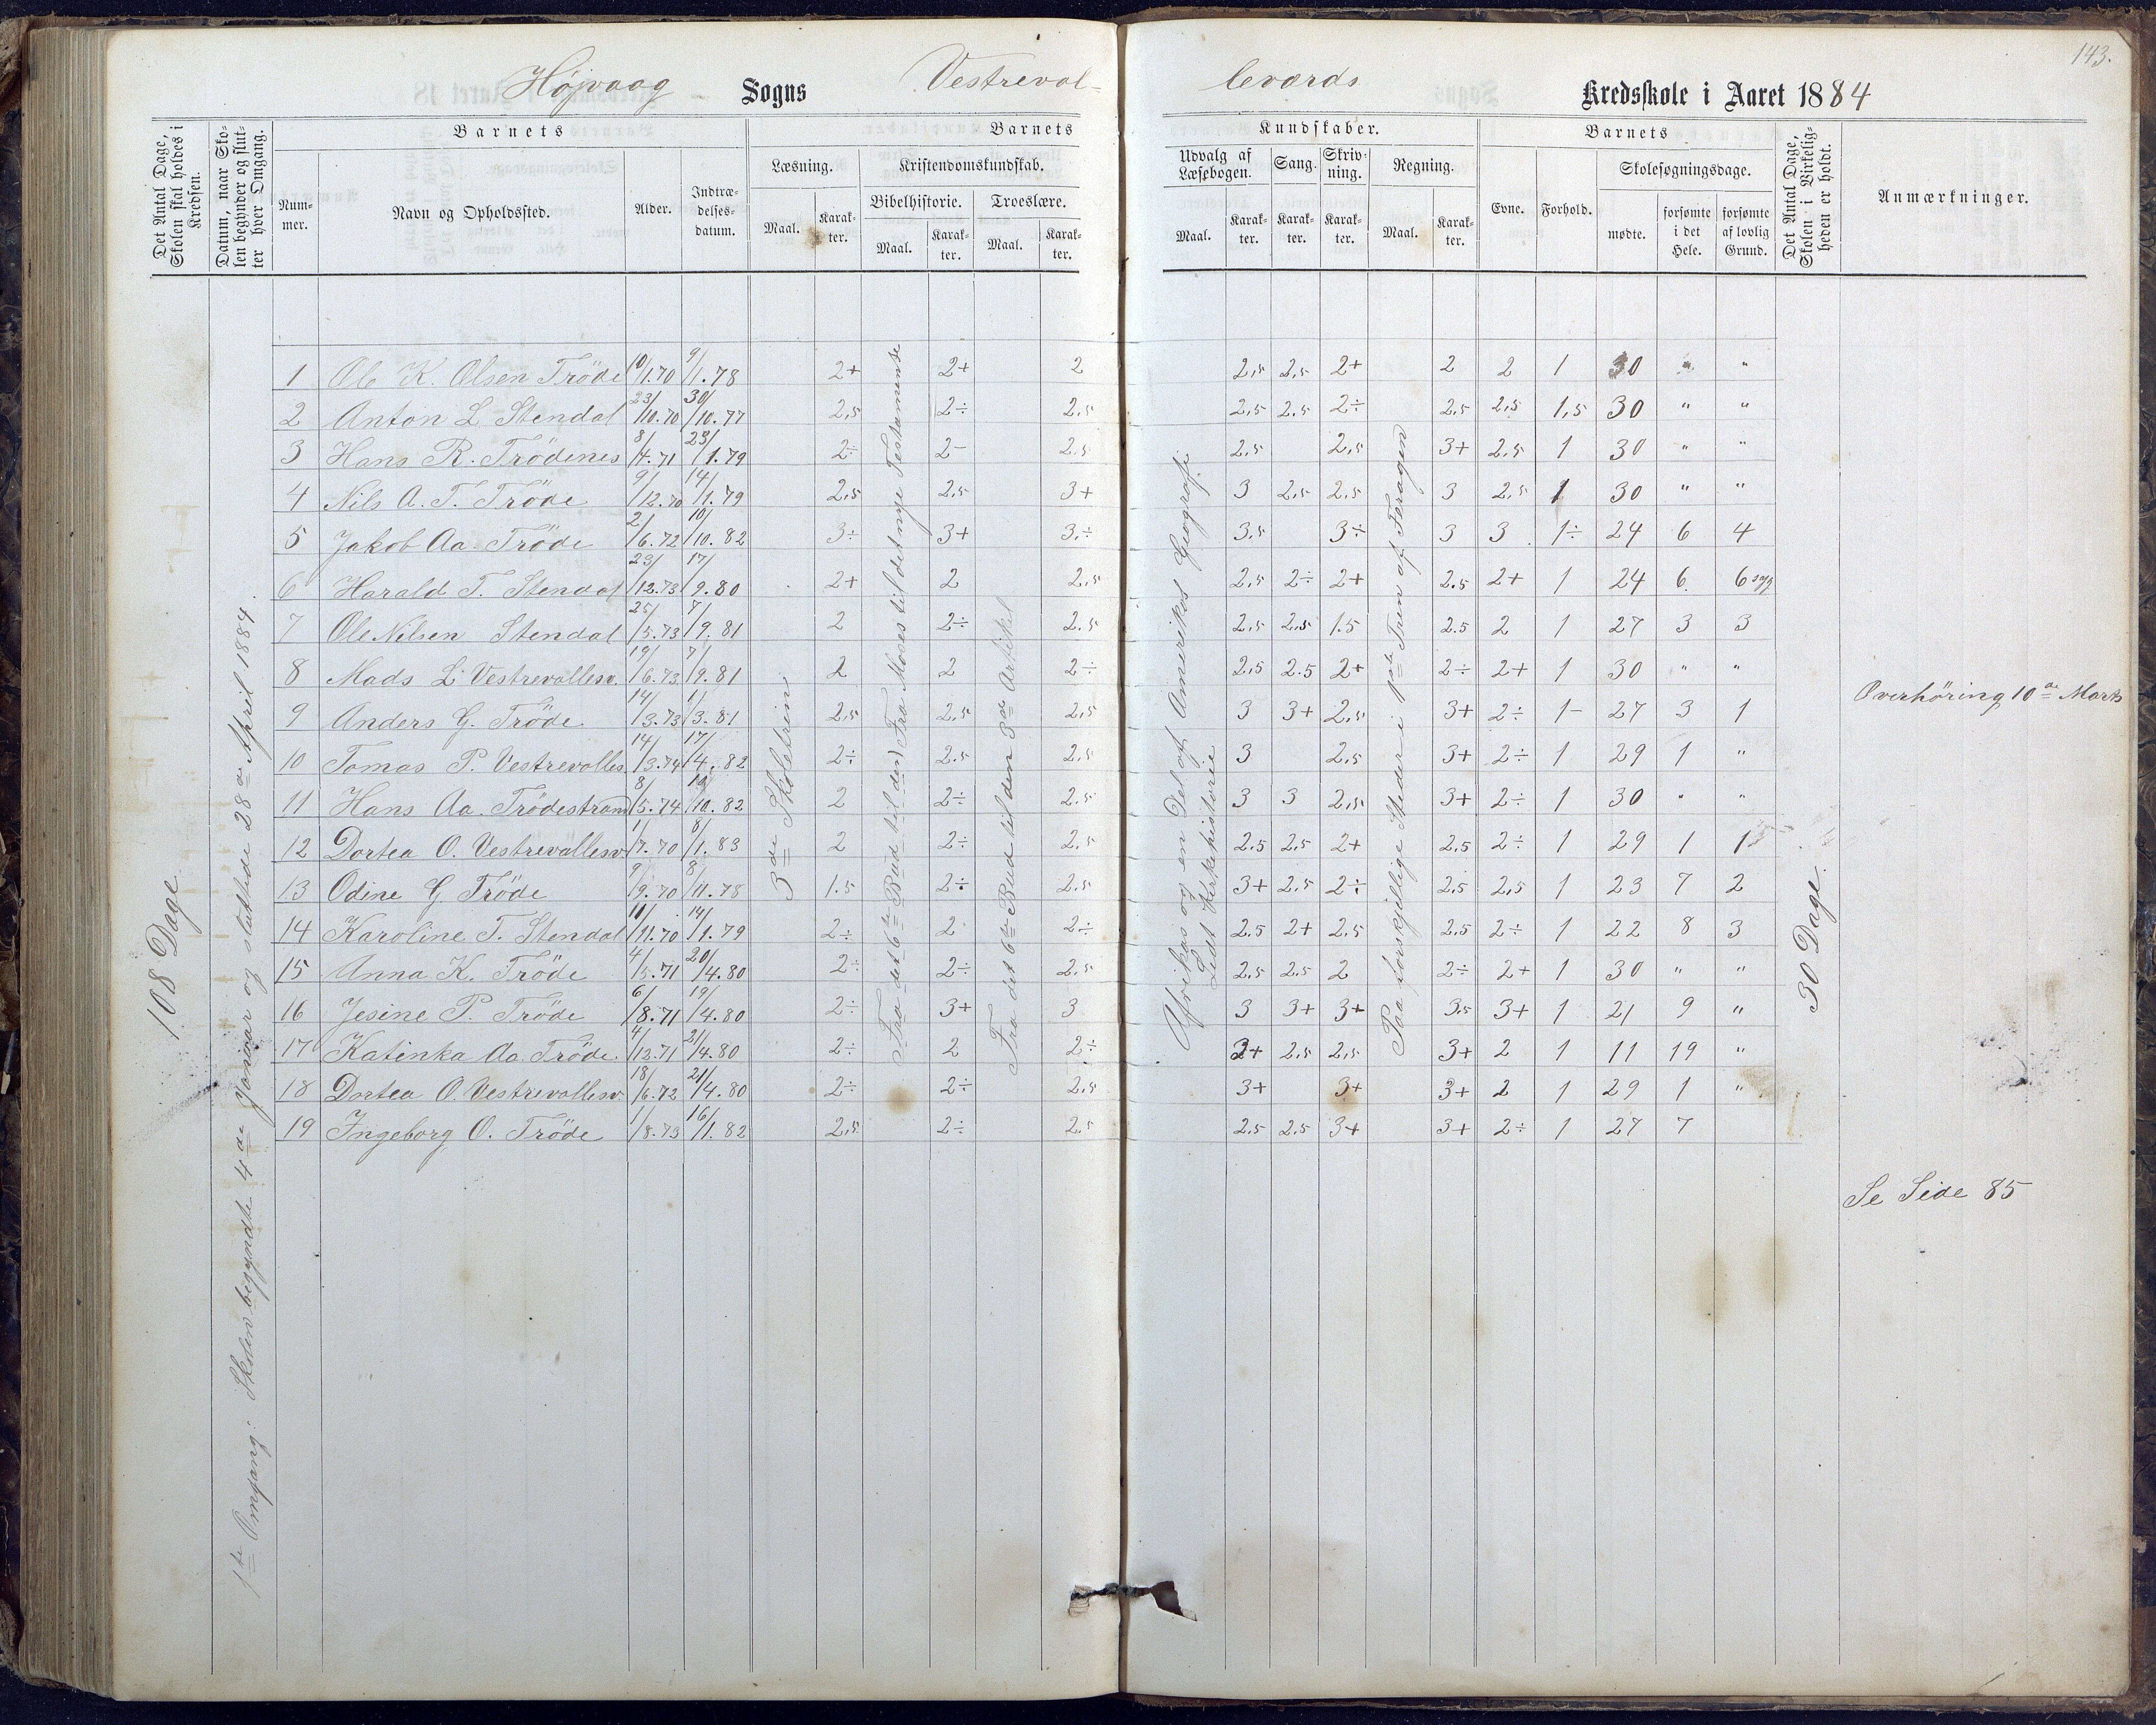 143.
Højvaag Sogns Vestreval- leværds Kredsskole i Aaret 1884
Det Antal Dage, Skolen skal holdes i Kredsen.
Datum, naar Skolen begynder og slutter hver Omgang.
Barnets
Nummer.
Navn og Opholdssted.
Alder.
Indtrædelsesdatum.
Barnets
Læsning.
Maal.
Karakter.
Kristendomskundskab.
Bibelhistorie.
Maal.
Karakter.
Troeslære.
Maal.
Karakter.
Kundskaber.
Udvalg af Læsebogen.
Maal.
Karakter.
Sang.
Karakter.
Skrivning.
Karakter.
Regning.
Maal.
Karakter.
Barnets
Evne.
Forhold.
Skolesøgningsdage.
mødte.
forsømte i det Hele.
forsømte af lovlig Grund.
Det Antal Dage, Skolen i Virkeligheden er holdt.
Anmærkninger.
108 Dage
1ste Omgang: Skolen begyndte 4de Januar og sluttede 28de April 1884.
3de Skoletrin
Fra det 6te Bud til den) Fra Moses til det nye Testamente
Fra det 6te Bud til den 3die Artikel
Afrikas og en Del af Amerikas Geografi
Lidt Kirkehistorie
Paa forskjellige Steder i
30 Dage.
1 Ole K. Olsen Tröde 10/1.70 9/1.78 2+ 2+ 2 2,5 2,5 2+ 2 2 1 30 " "
2 Anton L. Stendal 23/10.70 30/10.77 2,5 2÷ 2.5 2,5 2.5 2÷ 2.5 2,5 1,5 30 " "
3 Hans R. Trödenes 8/4.71 23/1.79 2÷ 2- 2.5 2.5 2,5 3+ 2.5 1 30 " "
4 Nils A. T. Tröde 9/12.70 14/1.79 2,5 2,5 3+ 3 2,5 2,5 3 2,5 1 30 " "
5 Jakob Aa. Tröde 2/6.72 10/10.82 3÷ 3+ 3÷ 3.5 3÷ 3 3 1÷ 24 6 4
6 Harald T. Stendal 23/12.73 17/9.80 2+ 2 2,5 2,5 2÷ 2+ 2.5 2+ 1 24 6. 6 syg
7 Ole Nilsen Stendal 25/5.73 7/9.81 2 2÷ 2.5 2,5 2.5 1.5 2.5 2 1 27 3 3
8 Mads L. Vestrevallesv. 19/6.73 7/9.81 2 2 2÷ 2.5 2.5 2+ 2÷ 2+ 1 30 " "
9 Anders G. Tröde 14/3.73 1/3.81 2,5 2,5 2,5 3 3+ 2,5 3+ 2÷ 1- 27 3 1 Overhöring 10de Marts
10 Tomas P. Vestrevalles 14/3.74 17/4.82 2÷ 2.5 2.5 3 2,5 3+ 2÷ 1 29 1 "
11 Hans Aa. Trödestrand 8/5.74 10/10.82 2 2÷ 2.5 3 3 2,5 3+ 2÷ 1 30 " "
12 Dortea O. Vestrevallesv 1/7.70 8/1.83 2 2÷ 2.5 2.5 2,5 2+ 2,5 2÷ 1 29 1 1
13 Odine G. Tröde 9/9.70 8/11.78 1.5 2÷ 2.5 3+ 2,5 2÷ 2.5 2,5 1 23 7 2
14 Karoline T. Stendal 11/11.70 14/1.79 2÷ 2 2÷ 2.5 2+ 2.5 2.5 2÷ 1 22 8 3
15 Anna K. Tröde 4/5.71 20/4.80 2÷ 2÷ 2.5 2,5 2.5 2 2÷ 2+ 1 30 " "
16 Jesine P. Tröde 6/8.71 19/4.80 2÷ 3+ 3 3 3+ 3+ 3.5 3+ 1 21 9 "
17 Katinka Aa. Tröde 4/12.71 21/4.80 2÷ 2 2÷ 3+ 2,5 2,5 3+ 2 1 11 19 "
18 Dortea O. Vestrevallesv. 18/6.72 21/4.80 2÷ 2÷ 2.5 3+ 3+ 3+ 2 1 29 1 "
19 Ingeborg O. Tröde 1/8.73 16/1.82 2,5 2÷ 2.5 2.5 2.5 3+ 3+ 2÷ 1 27 7
Se Side 85